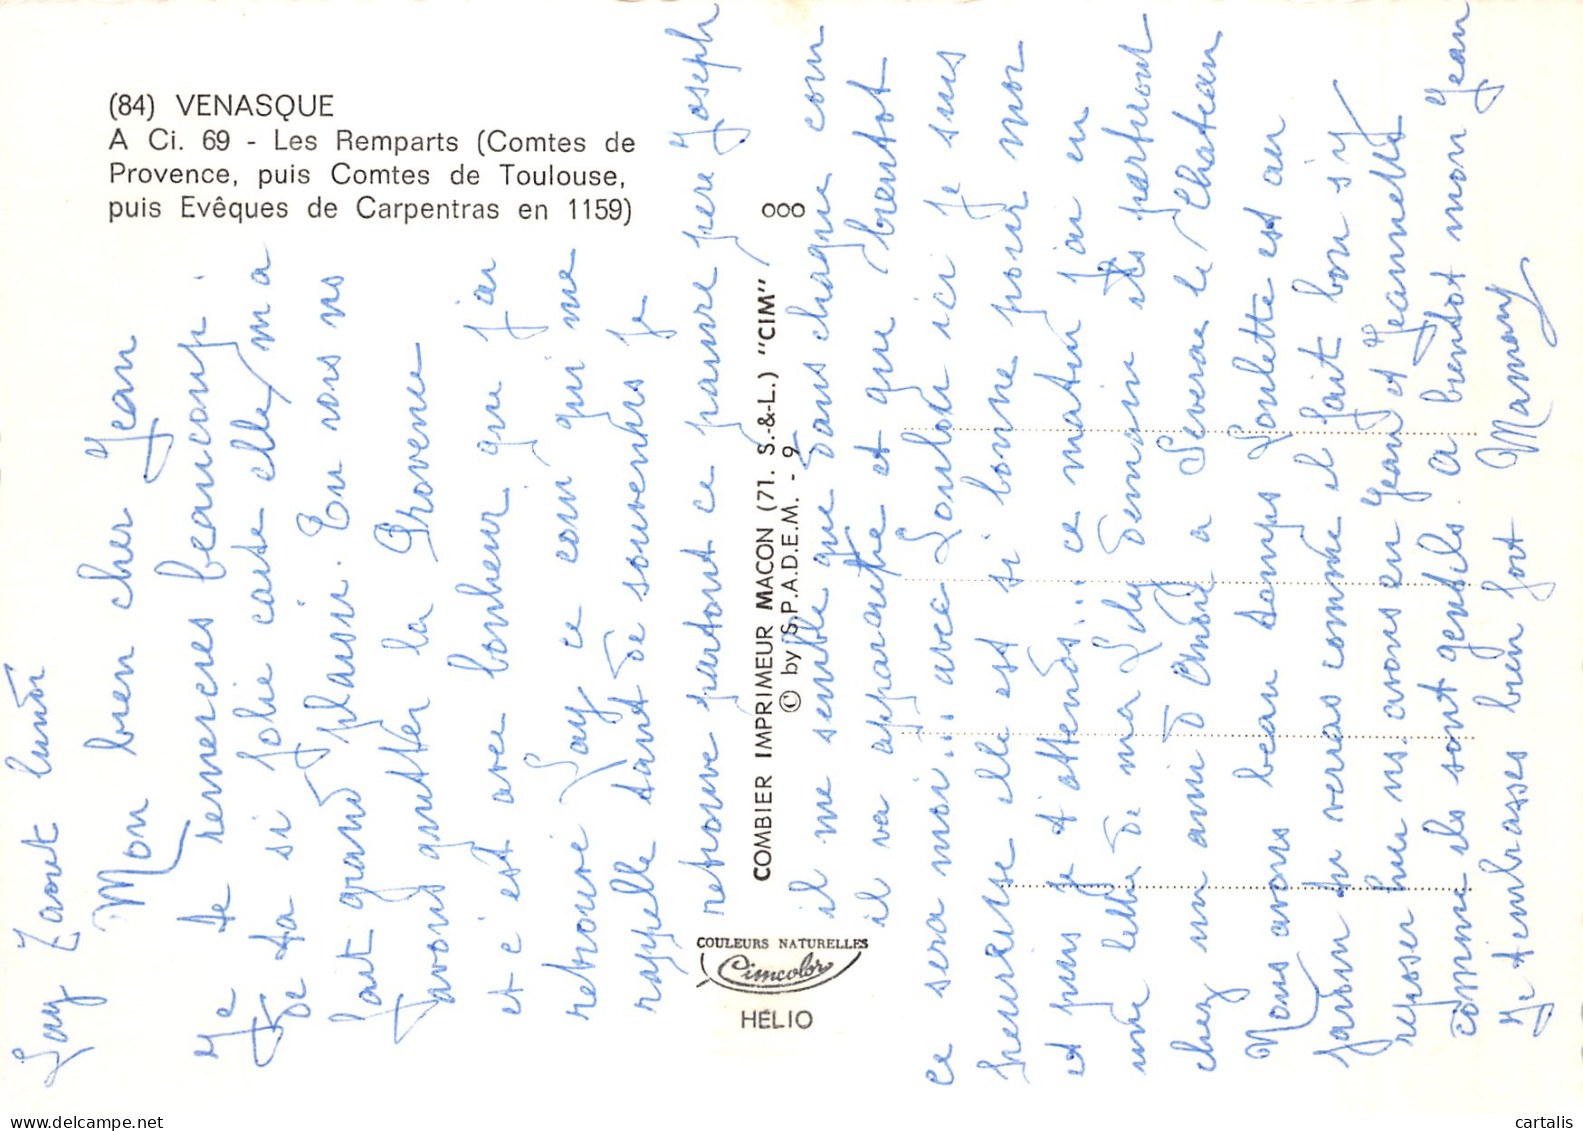 (84) VENASQUE
A Ci. 69 - Les Remparts (Comtes de
Provence, puis Comtes de Toulouse,
puis Evêques de Carpentras en 1159)
COMBIER IMPRIMEUR MACON (71. S.-&-L.) "CIM"
© by S.P.A.D.E.M. - 9
COULEURS NATURELLES
Cimcolor
HÉLIO
lundi
Mon bien cher Jean
Je te remercies beaucoup
de ta si jolie carte elle m'a
fait grand plaisir. Tu vois ns
avons quitter la Provence
et c'est avec bonheur que j'ai
retrouvé ce coin qui me
rappelle tant de souvenirs je
retrouve partout ce pauvre père Joseph
il me semble que dans chaque coin
il va apparaitre et que bientot
ce sera moi... avec Loulou ici je suis
heureuse elle est si bonne pour moi
et puis je t'attends... ce matin j'ai eu
une lettre de ma Lily demain ils partiront
chez un ami d'André a le Chateau
Nous avons beau temps Loulette est au
jardin tu verras comme il fait bon s'y
reposer hier ns avons eu Jean et Jeannette
comme ils sont gentils. a bientot mon Jean
Je t'embrasses bien fort Mamony
cartalis